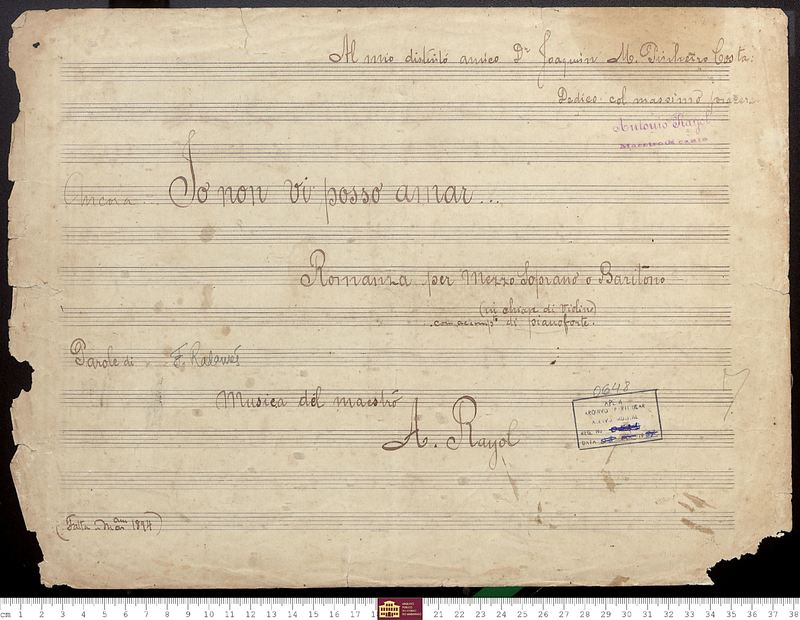 Al mio distintó amico Dr Joaquin M. Pinheiro Costa:
Dedico col massimo piacer
Antonio Rayol
Maestro de canto
Ancora... Io non vi posso amar...
Romanza per Mezzo Soprano o Baritono
(in chiave di Violino)
con accompto di pianoforte.
Parole di F.
Musica del maestró
A. Rayol
0648
ARQUIVO PARTICULAR
DATA
1894)
cm 1 2 3 4 5 6 7 8 9 10 11 12 13 14 15 16 17 18 21 22 23 24 25 26 27 28 29 30 31 32 33 34 35 36 37 38